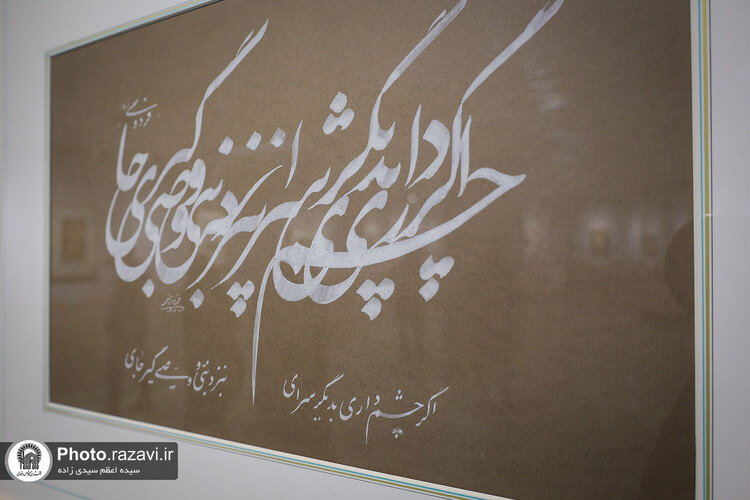 اگر چشم داری بدیگر سرای بنزد نبی و وصی گیر جای
فردوسی
اگر چشم داری بدیگر سرای
بنزد نبی و وصی گیر جای
Photo.razavi.ir
سیده اعظم سیدی زاده